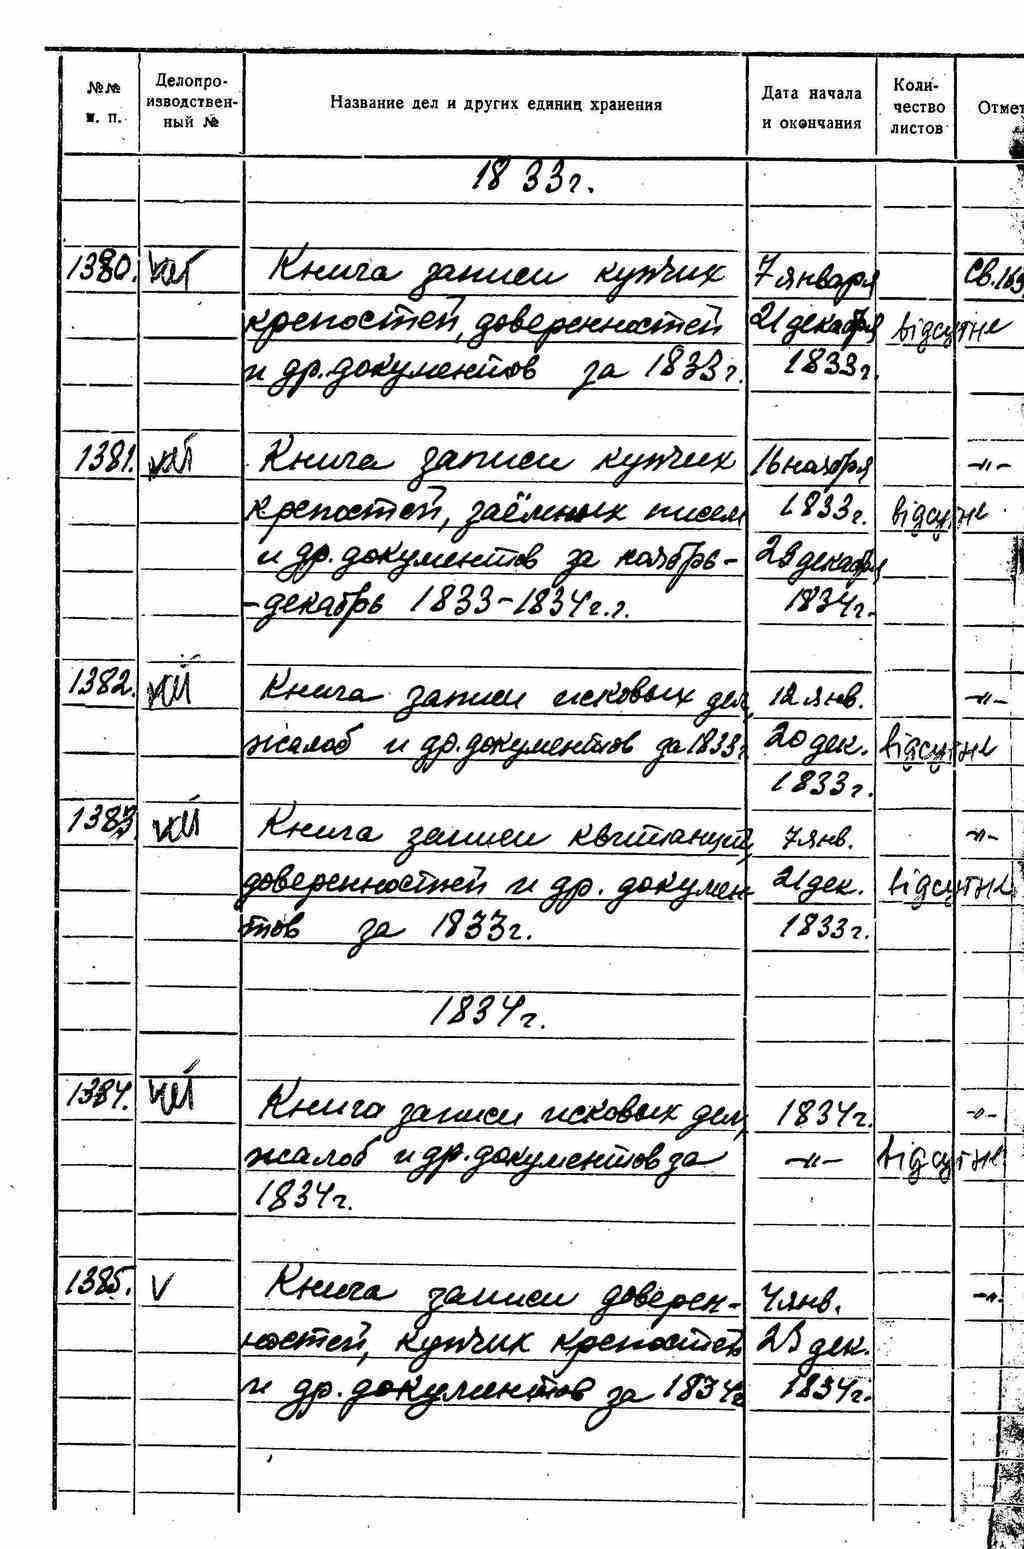 №№ п. п. Делопроизводственный № Название дел и других единиц хранения Дата начала и окончания Количество листов Отмет
1833г.
1380. нет Книга записи купчих 7 января св.
крепостей, доверенностей 21 декабря відсутнє
и др. документов за 1833г. 1833г.
1381. нет Книга записи купчих 16 ноября -"-
крепостей, заёмных писем 1833г. відсутнє
и др. документов за ноябрь- 29 декабря
-декабрь 1833-1834г.г. 1834г.
1382. нет Книга записи исковых дел, 12 янв. -"-
жалоб и др. документов за 1833г 20 дек. відсутнє
1833г.
1383. нет Книга записи квитанций, 7 янв. -"-
доверенностей и др. докумен 21 дек. відсутнє
тов за 1833г. 1833г.
1834г.
1384. нет Книга записи исковых дел, 1834г. -"-
жалоб и др. документов за -"- відсутнє
1834г.
1385. V Книга записи доверен- янв. -"-
ностей, купчих крепостей 23 дек.
и др. документов за 1834г 1834г.